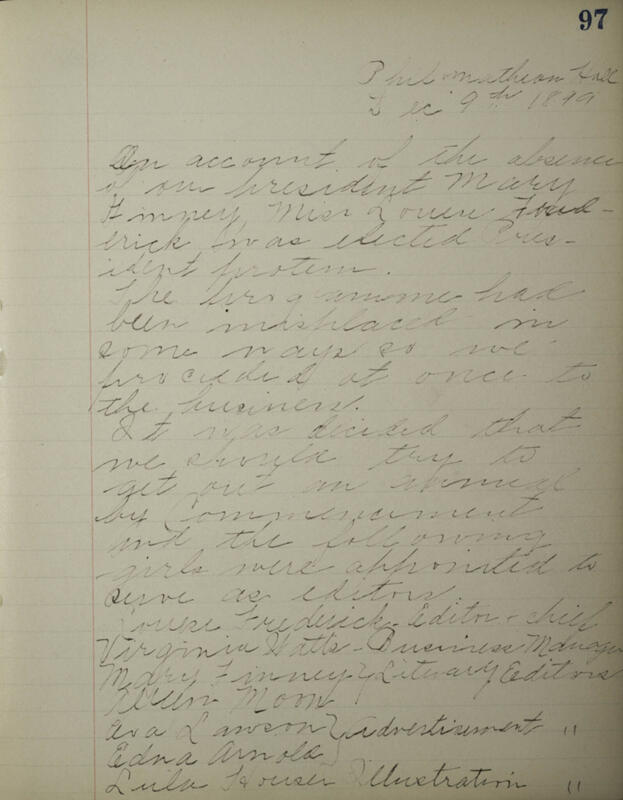 97
Philomathean Hall
Dec 9th 1899
On account of the absence
of our president Mary
Finney Miss Louise Fred-
erick was elected Pres-
ident protem.
The programme had
been misplaced in
some ways so we
proceeded at once to
the business.
It was decided that
we should try to
get out an annual
by Commencement
and the following
girls were appointed to
serve as editors
Louise Frederick - Editor - chief
Virginia Watts - Business Manager
Mary Finney } Literary Editors
Moon
Eva Lawson } Advertisement "
Edna Arnold
Lula Houser Illustration "